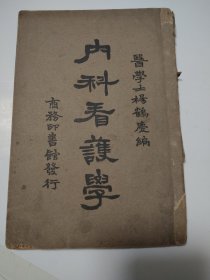 醫學士楊鶴慶編
內科看護學
商務印書館發行